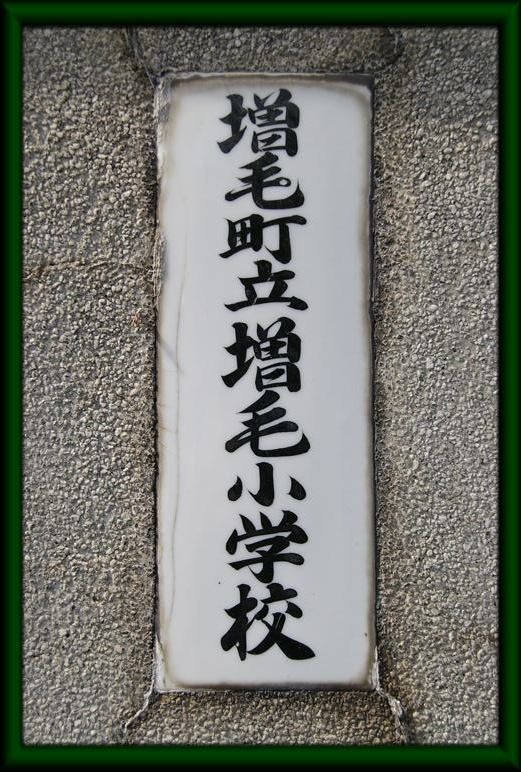 増毛町立増毛小学校